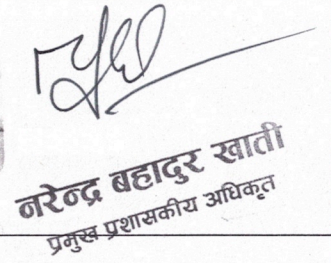 नरेन्द्र बहादुर खाती
प्रमुख प्रशासकीय अधिकृत